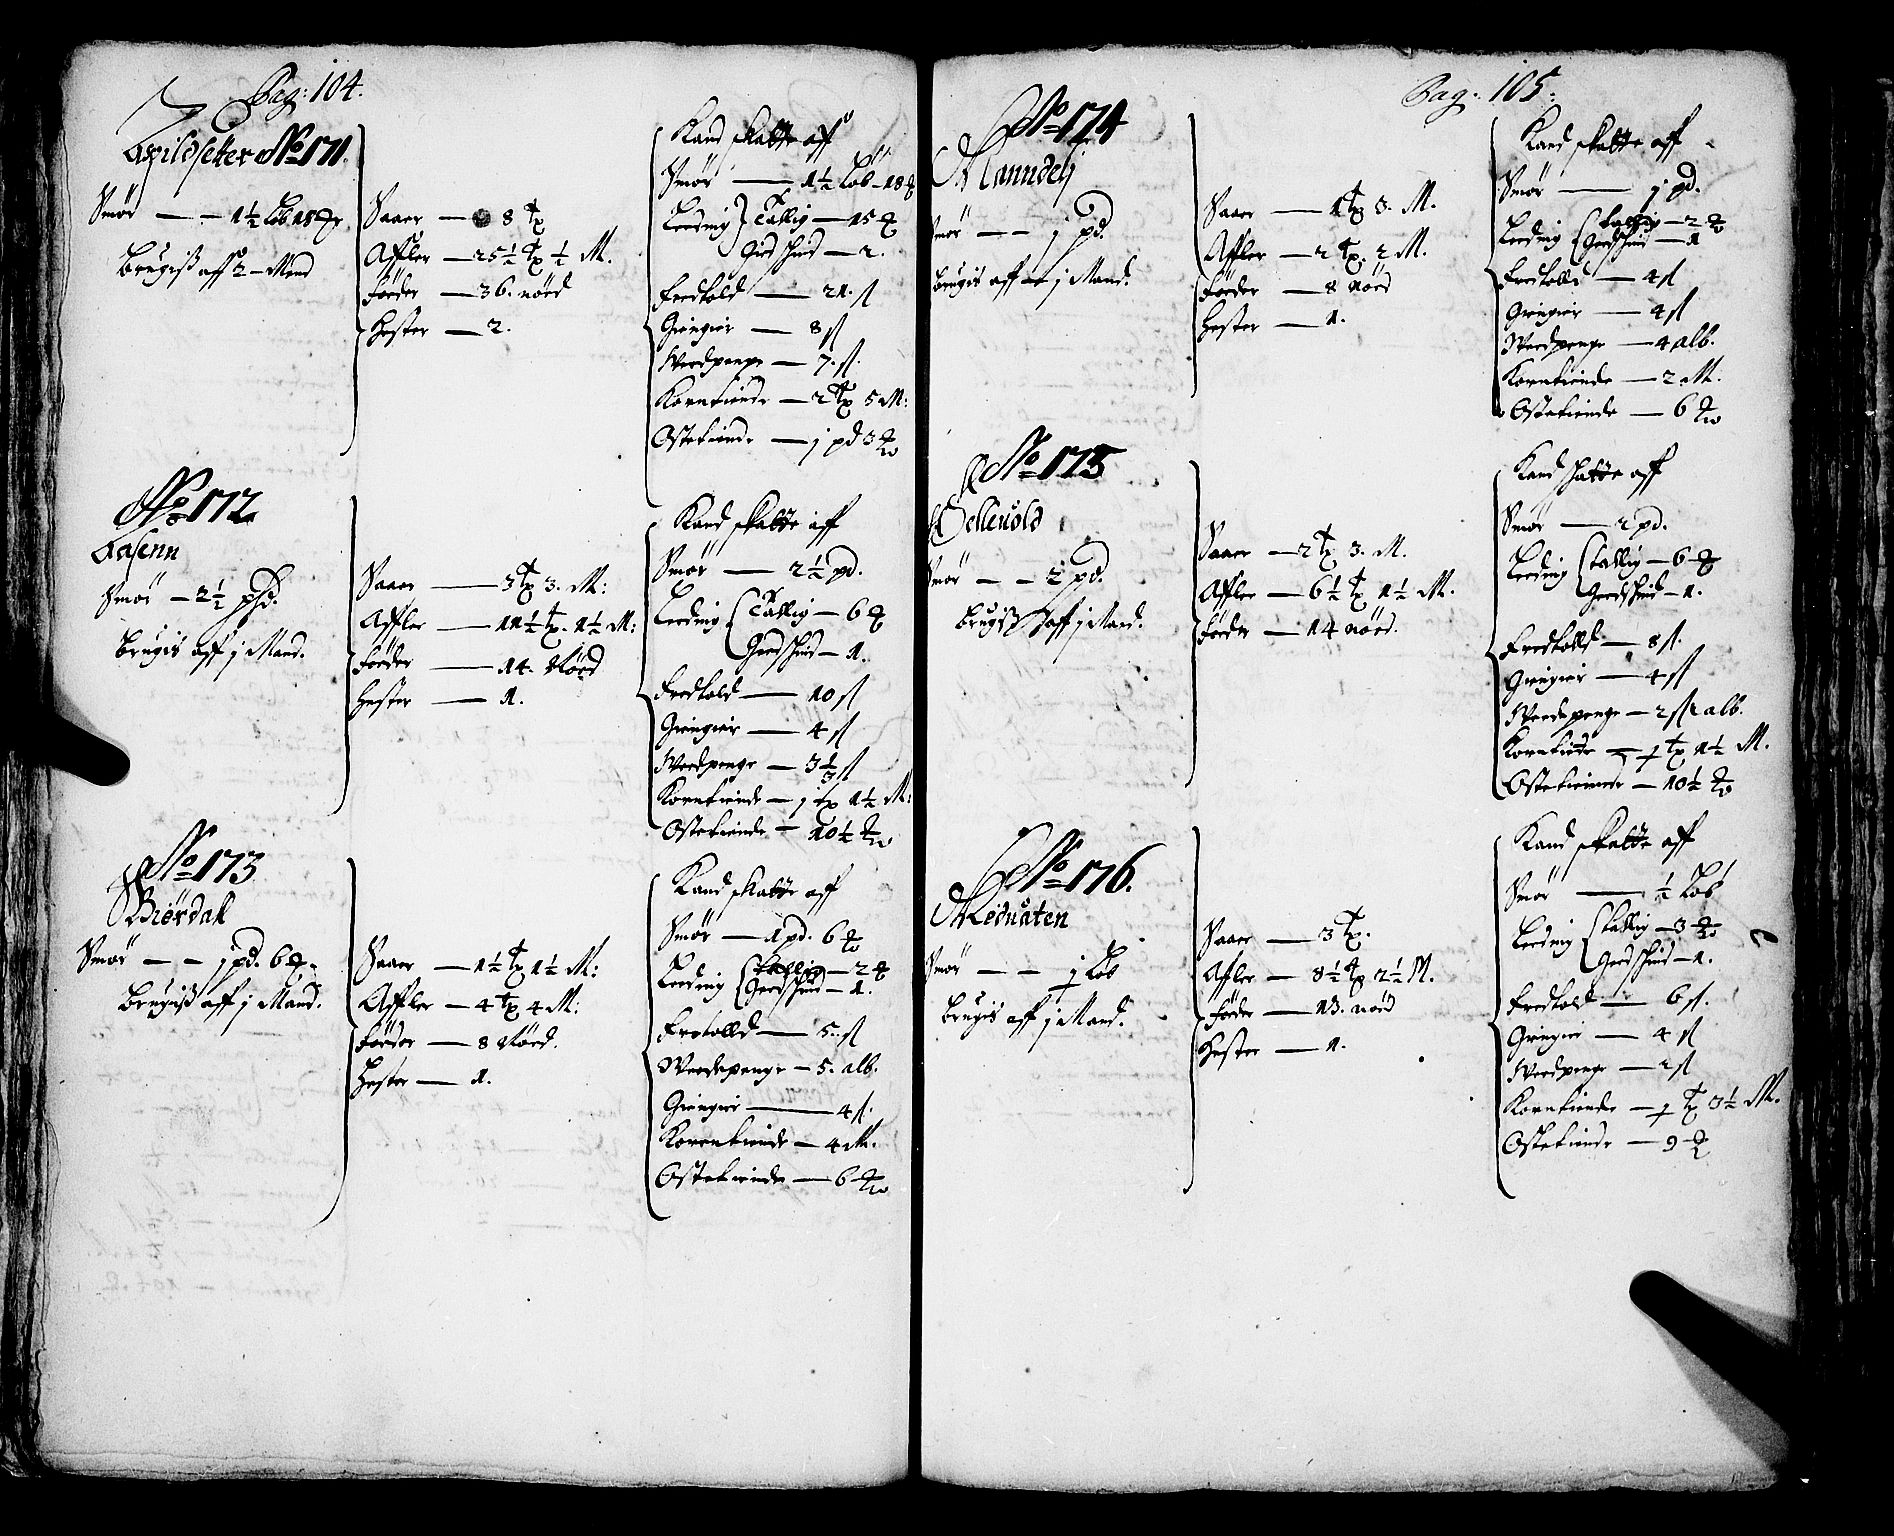 Pag: 104.
Axildsetter No 171.
Smør — — 1½ Løb 18 ℔
brugiß aff 2 Mend
Saaer — 8 tr
Affler — 25½ tr ½ M.
föeder — 36. nöed
hester — 2.
Kand skatte aff
Smør — 1½ Løb 18 ℔
Leeding } Tallig — 15 ℔
Giedschind — 2.
Fredtold — 21. ſl
Giengier — 8 ſl
Weedpenge — 7. ſl.
Korntiende — 2 tr 5 M:
Ostetiende — j pd 3 ℔
No 172
Aasenn
Smør — 2½ pd.
brugis aff j Mand.
Saaer — 3 tr 3. M:
Affler — 11½ tr. 1½ M:
föeder — 14. Nöed
hester — 1.
Kand skatte aff
Smør — 2½ pd.
Leeding { Tallig — 6 ℔
Giedschind — 1.
Fredtold — 10 ſl
Giengier — 4 ſl
Weedpenge — 3⅓ ſl
Korntiende — j tr 1½ M:
Ostetiende — 10½ ℔
No 173
Biørdal
Smør — — j pd. 6 ℔.
brugiß aff j Mand.
Saaer — 1½ tr 1½ M:
Affler — 4 tr 4 M:
föeder — 8 Nöed.
hester — 1.
Kand skatte aff
Smør — 1 pd. 6 ℔
Leeding { tallig — 2 ℔
Giedschind — 1.
Fretolld — 5. ſl
Weedepenge — 5. alb.
Giengier — 4 ſl.
Korentiende — 4 M.
Ostetiende — 6 ℔
Pag: 105:
No 174
Manndelj
Smør — — j pd.
brugis aff j Mand.
Saaer — 1 tr 3. M.
Affler — 2 tr. 2 M.
föeder — 8 Nöed
hester — 1.
Kand skatte aff
Smør — j pd.
Leeding { tallig — 2 ℔
Giedschind — 1
Fredtolld — 4 ſl
Giengier — 4 ſl
Weedpenge — 4 alb.
Korntiende — 2 M.
Ostetiende — 6 ℔
No 175
Hellevold
Smør — — 2 pd.
brugiß aff j Mand.
Saaer — 2 tr 3. M.
Affler — 6½ tr 1½ M.
föeder — 14 nöed.
Kand skatte aff
Smør — 2 pd.
Leeding { tallig — 6 ℔
Giedschind — 1.
Fredtolld — 8 ſl.
Giengier — 4 ſl
Weedepenge — 2 ſl 2 alb.
Korntiende — j tr 1½ M.
Ostetiende — 10½ ℔
No 176.
Medvaten
Smør — — j Løb
brugis aff j Mand.
Saaer — 3 tr.
Afler — 8½ tr 2½ M.
föder — 13. nöed
hester — 1.
Kand skatte aff
Smør — ½ Løb
Leeding { tallig — 3 ℔
Giedschind — 1.
Fredtold — 6 ſl.
Giengier — 4 ſl
Weedpenge — 2 ſl
Korntiende — j tr 3½ M.
Ostetiende — 9 ℔